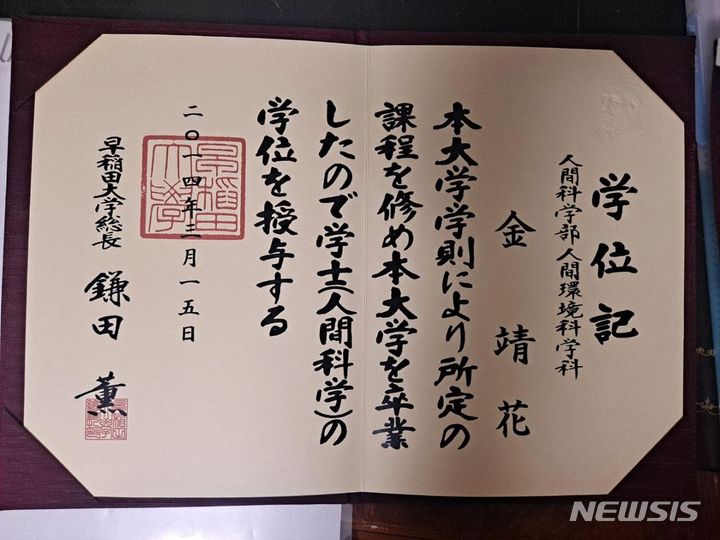 学位記
人間科学部人間環境科学科
金靖花
本大学学則により所定の
課程を修め本大学を卒業
したので学士(人間科学)の
学位を授与する
二〇一四年三月一五日
早稲田大学総長
鎌田薫
NEWSIS